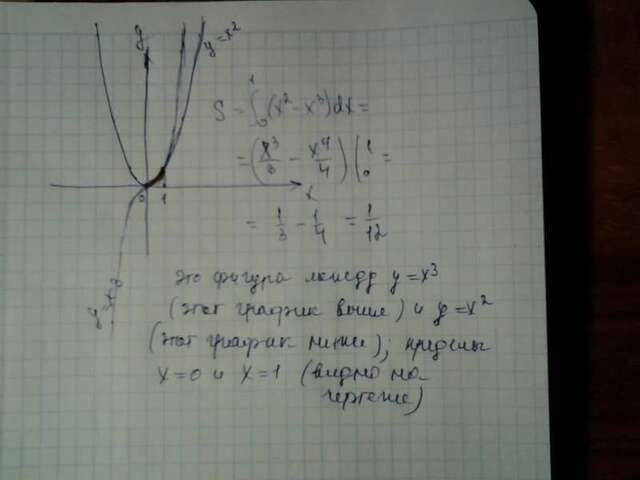 y
y = x²
S = ∫₀¹ (x² - x³) dx =
= (x³/3 - x⁴/4) |₀¹ =
= 1/3 - 1/4 = 1/12
0 1 x
y = x³
это фигура между y = x³
(этот график выше) и y = x²
(этот график ниже); пределы
x = 0 и x = 1 (видно на
чертеже)